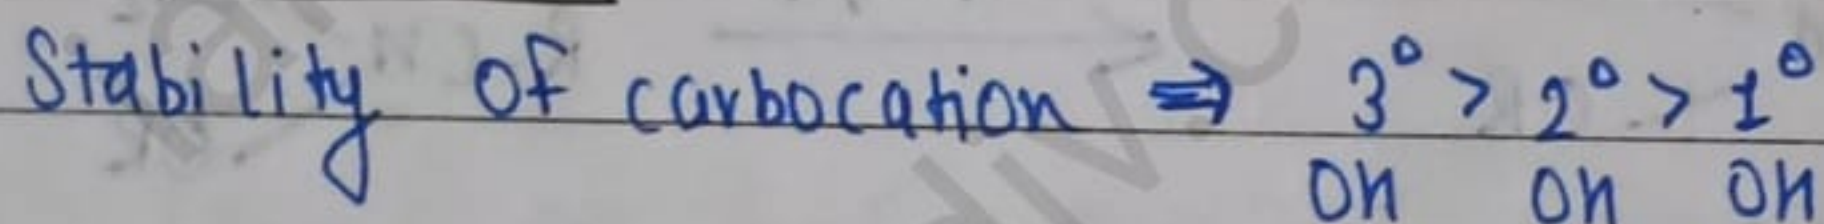 Stability of carbocation ⇒ 3° > 2° > 1°
OH OH OH